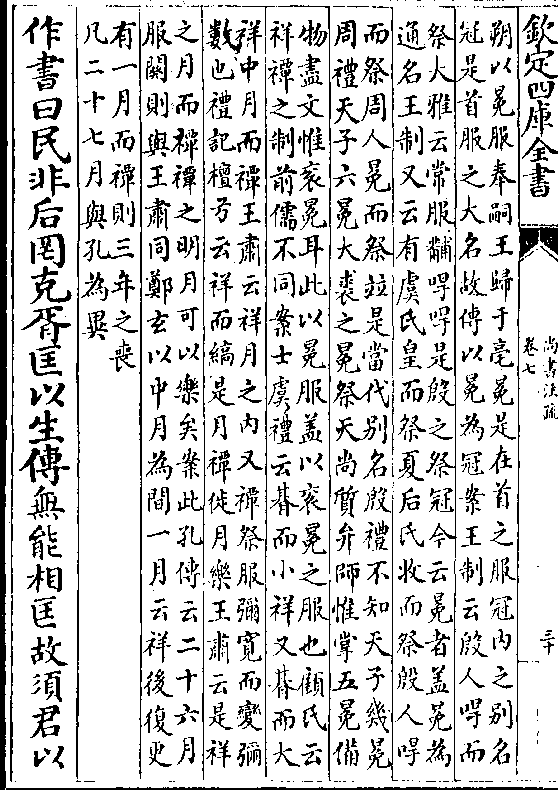 欽定四庫全書
尚書注疏
卷七
三十
朔以冕服奉嗣王歸于亳冕是在首之服冠内之别名
冠是首服之大名故傳以冕為冠案王制云殷人哻而
祭大雅云常服黼哻哻是殷之祭冠今云冕者蓋冕為
通名王制又云有虞氏皇而祭夏后氏收而祭殷人哻
而祭周人冕而祭竝是當代别名殷禮不知天子幾冕
周禮天子六冕大裘之冕祭天尚質弁師惟掌五冕備
物盡文惟衮冕耳此以冕服蓋以衮冕之服也顧氏云
祥禫之制前儒不同案士虞禮云朞而小祥又朞而大
祥中月而禫王肅云祥月之内又禫祭服彌寛而變彌
數也禮記檀弓云祥而縞是月禫徙月樂王肅云是祥
之月而禫禫之明月可以樂矣案此孔傳云二十六月
服闋則與王肅同鄭玄以中月為間一月云祥後復更
有一月而禫則三年之喪
凡二十七月與孔為異
作書曰民非后罔克胥匡以生傳無能相匡故須君以